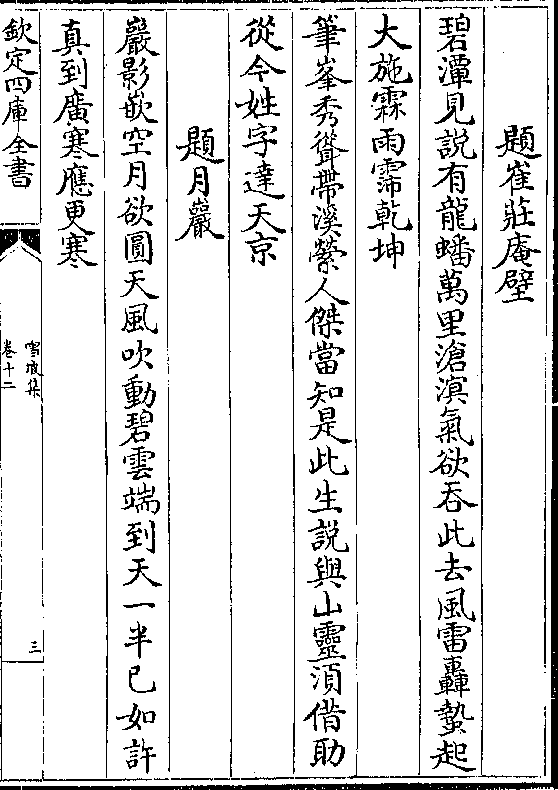 題崔莊庵壁
碧潭見說有龍蟠萬里滄溟氣欲吞此去風雷轟蟄起
大施霖雨霈乾坤
筆峯秀聳帶溪縈人傑當知是此生說與山靈須借助
從今姓字達天京
題月巖
巖影嵌空月欲圓天風吹動碧雲端到天一半已如許
真到廣寒應更寒
欽定四庫全書
雪坡集
卷十二
三